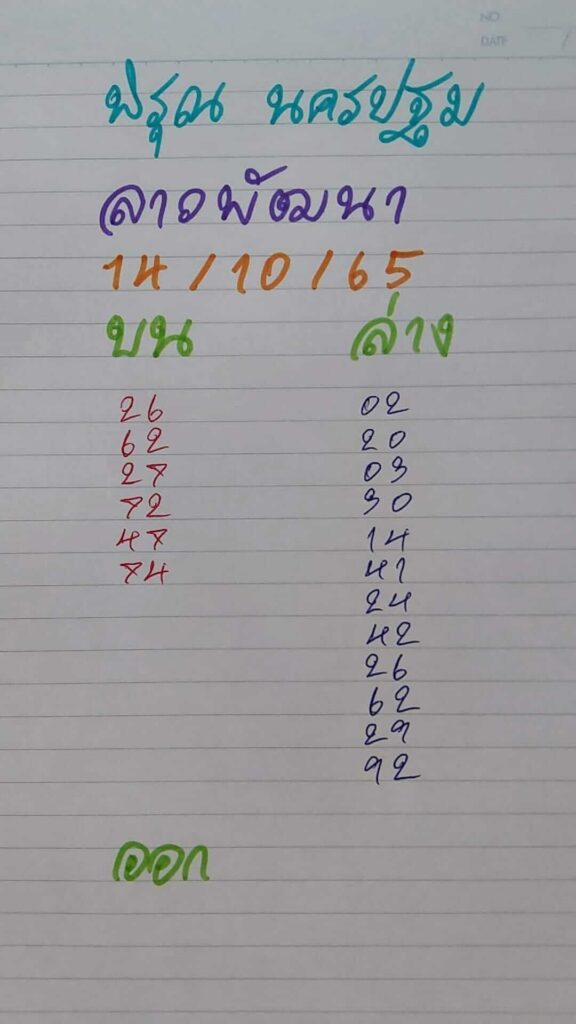 NO
DATE / /
พิรุณ นครปฐม
ลาวพัฒนา
14/10/65
บน ล่าง
26 02
62 20
27 03
72 30
47 14
74 41
24
42
26
62
29
92
ออก